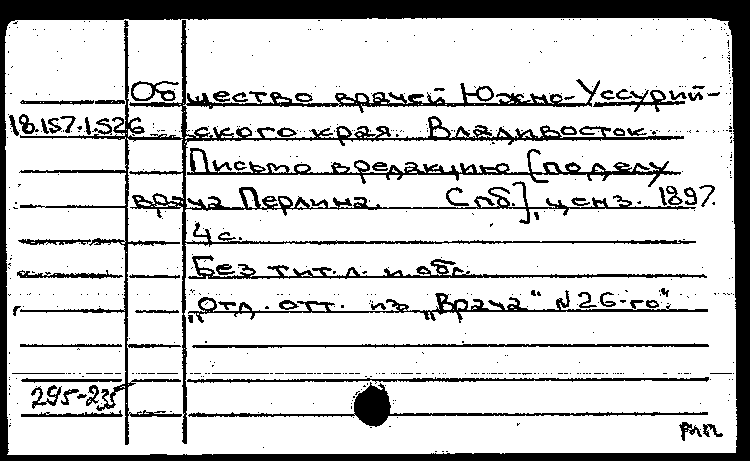 Общество врачей Южно-Уссурий-
18.157.1.526 ского края. Владивосток.
Письмо в редакцию [по делу
врача Перлина. Спб.], ценз. 1897.
4 с.
Без тит. л. и обл.
„Отд. отт. из „Врача“ N 26-го“.
295-235